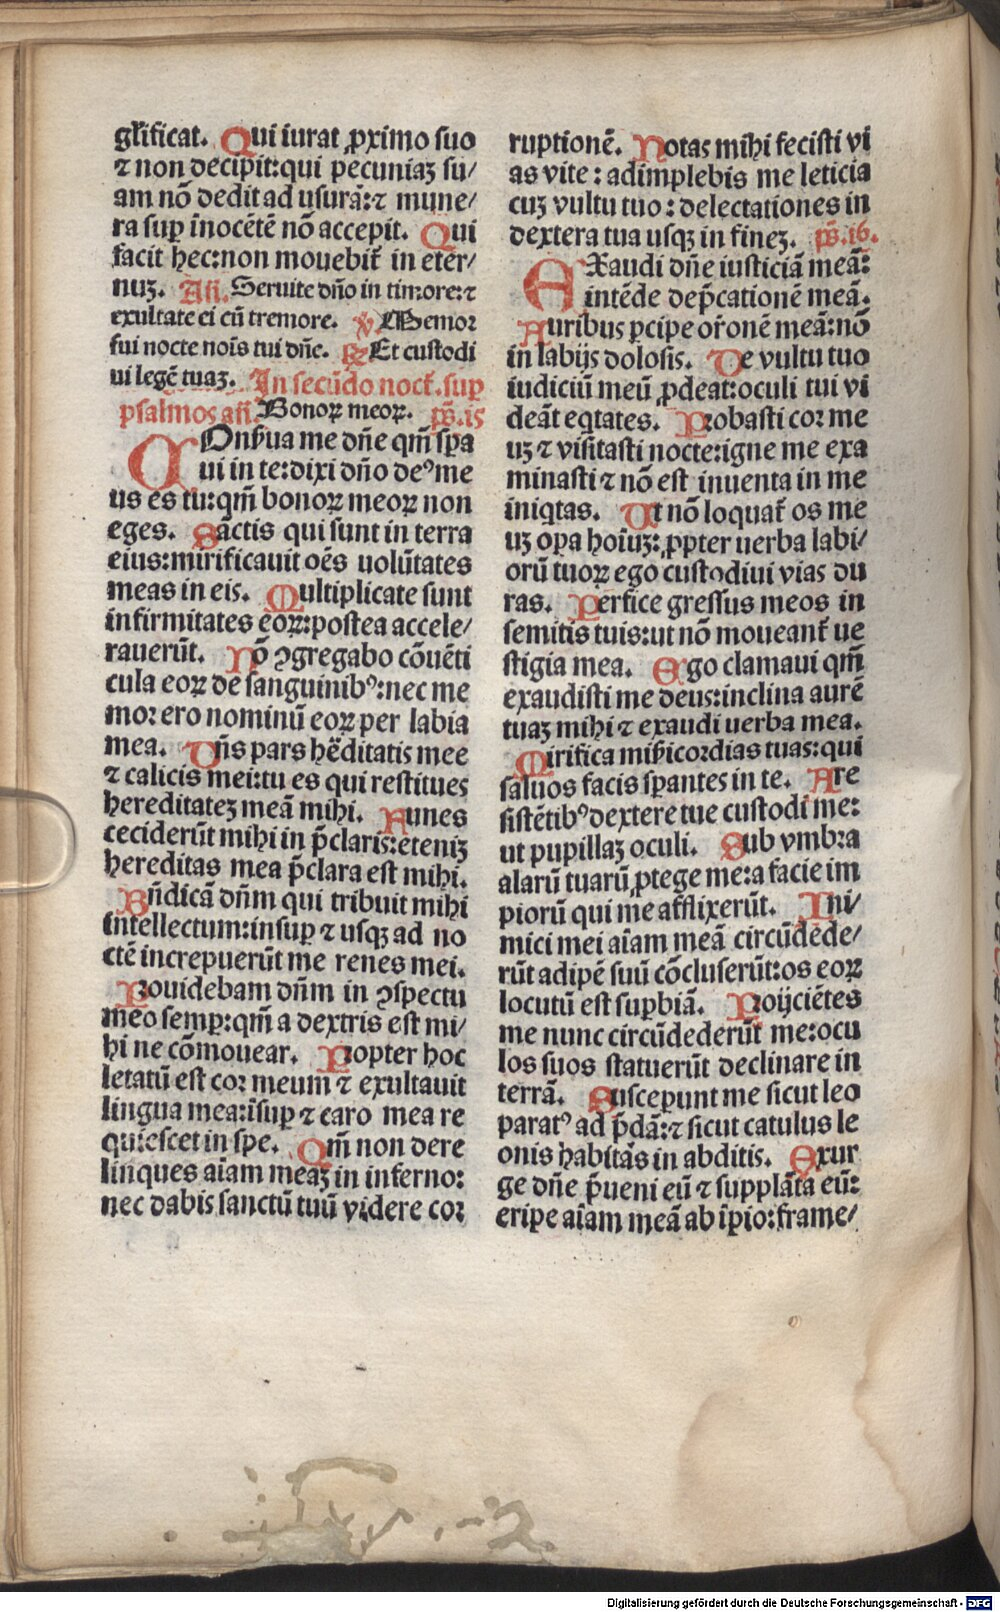 gl̄ificat. Qui iurat ꝓximo suo
⁊ non decipit:qui pecuniaꝫ su/
am nō dedit ad usurā:⁊ mune/
ra suꝑ īnocētē nō accepit. Qui
facit hec:non mouebit̄ in eter/
nuꝫ. Añ. Seruite dn̄o in timore:⁊
exultate ei cū tremore. ℣. Memor
fui nocte noīs tui dn̄e. ℞ Et custodi
ui legē tuaꝫ. In secūdo noct̄. suꝑ
psalmos añ. Bonoꝝ meoꝝ. ps̄.15
COnẜua me dn̄e qm̄ sꝑa
ui in te:dixi dn̄o deꝰ me
us es tu:qm̄ bonoꝝ meoꝝ non
eges. Sāctis qui sunt in terra
eius:mirificauit oēs uolūtates
meas in eis. Multiplicate sunt
infirmitates eoꝝ:postea accele/
rauerūt. Nō ꝯgregabo cōuēti
cula eoꝝ de sanguinibꝰ:nec me
mor ero nominū eoꝝ per labia
mea. Dn̄s pars hēditatis mee
⁊ calicis mei:tu es qui restitues
hereditateꝫ meā mihi. Funes
ceciderūt mihi in p̄claris:eteniꝫ
hereditas mea p̄clara est mihi.
Bn̄dicā dn̄m qui tribuit mihi
intellectum:insuꝑ ⁊ usqꝫ ad no
ctē increpuerūt me renes mei.
Prouidebam dn̄m in ꝯspectu
meo semꝑ:qm̄ a dextris est mi/
hi ne cōmouear. Propter hoc
letatū est cor meum ⁊ exultauit
lingua mea:īsuꝑ ⁊ caro mea re
quiescet in spe. Qm̄ non dere
linques aīam meaꝫ in inferno:
nec dabis sanctū tuū videre cor
ruptionē. Notas mihi fecisti vi
as vite : adimplebis me leticia
cuꝫ vultu tuo : delectationes in
dextera tua usqꝫ in fineꝫ. ps̄.16.
EXaudi dn̄e iusticiā meā:
intēde dep̄cationē meā.
Auribus ꝑcipe or̄onē meā:nō
in labijs dolosis. De vultu tuo
iudiciū meū ꝓdeat:oculi tui vi
deāt eq̄tates. Probasti cor me
uꝫ ⁊ visitasti nocte:igne me exa
minasti ⁊ nō est inuenta in me
iniq̄tas. Ut nō loquat̄ os me
uꝫ oꝑa hoīuꝫ:ꝓpter uerba labi/
orū tuoꝝ ego custodiui vias du
ras. Perfice gressus meos in
semitis tuis:ut nō moueant̄ ue
stigia mea. Ego clamaui qm̄
exaudisti me deus:inclina aurē
tuaꝫ mihi ⁊ exaudi uerba mea.
Mirifica mīsicordias tuas:qui
saluos facis sꝑantes in te. A re
sistētibꝰ dextere tue custodi me:
ut pupillaꝫ oculi. Sub vmbra
alarū tuarū ꝓtege me:a facie im
piorū qui me afflixerūt. Ini/
mici mei aīam meā circūdede/
rūt adipē suū cōcluserūt:os eoꝝ
locutū est suꝑbiā. Proijciētes
me nunc circūdederūt me:ocu
los suos statuerūt declinare in
terrā. Susceperunt me sicut leo
paratꝰ ad p̄dā:⁊ sicut catulus le
onis habitās in abditis. Exur
ge dn̄e p̄ueni eū ⁊ supplāta eū:
eripe aīam meā ab īpio:frame/
Digitalisierung gefördert durch die Deutsche Forschungsgemeinschaft - DFG